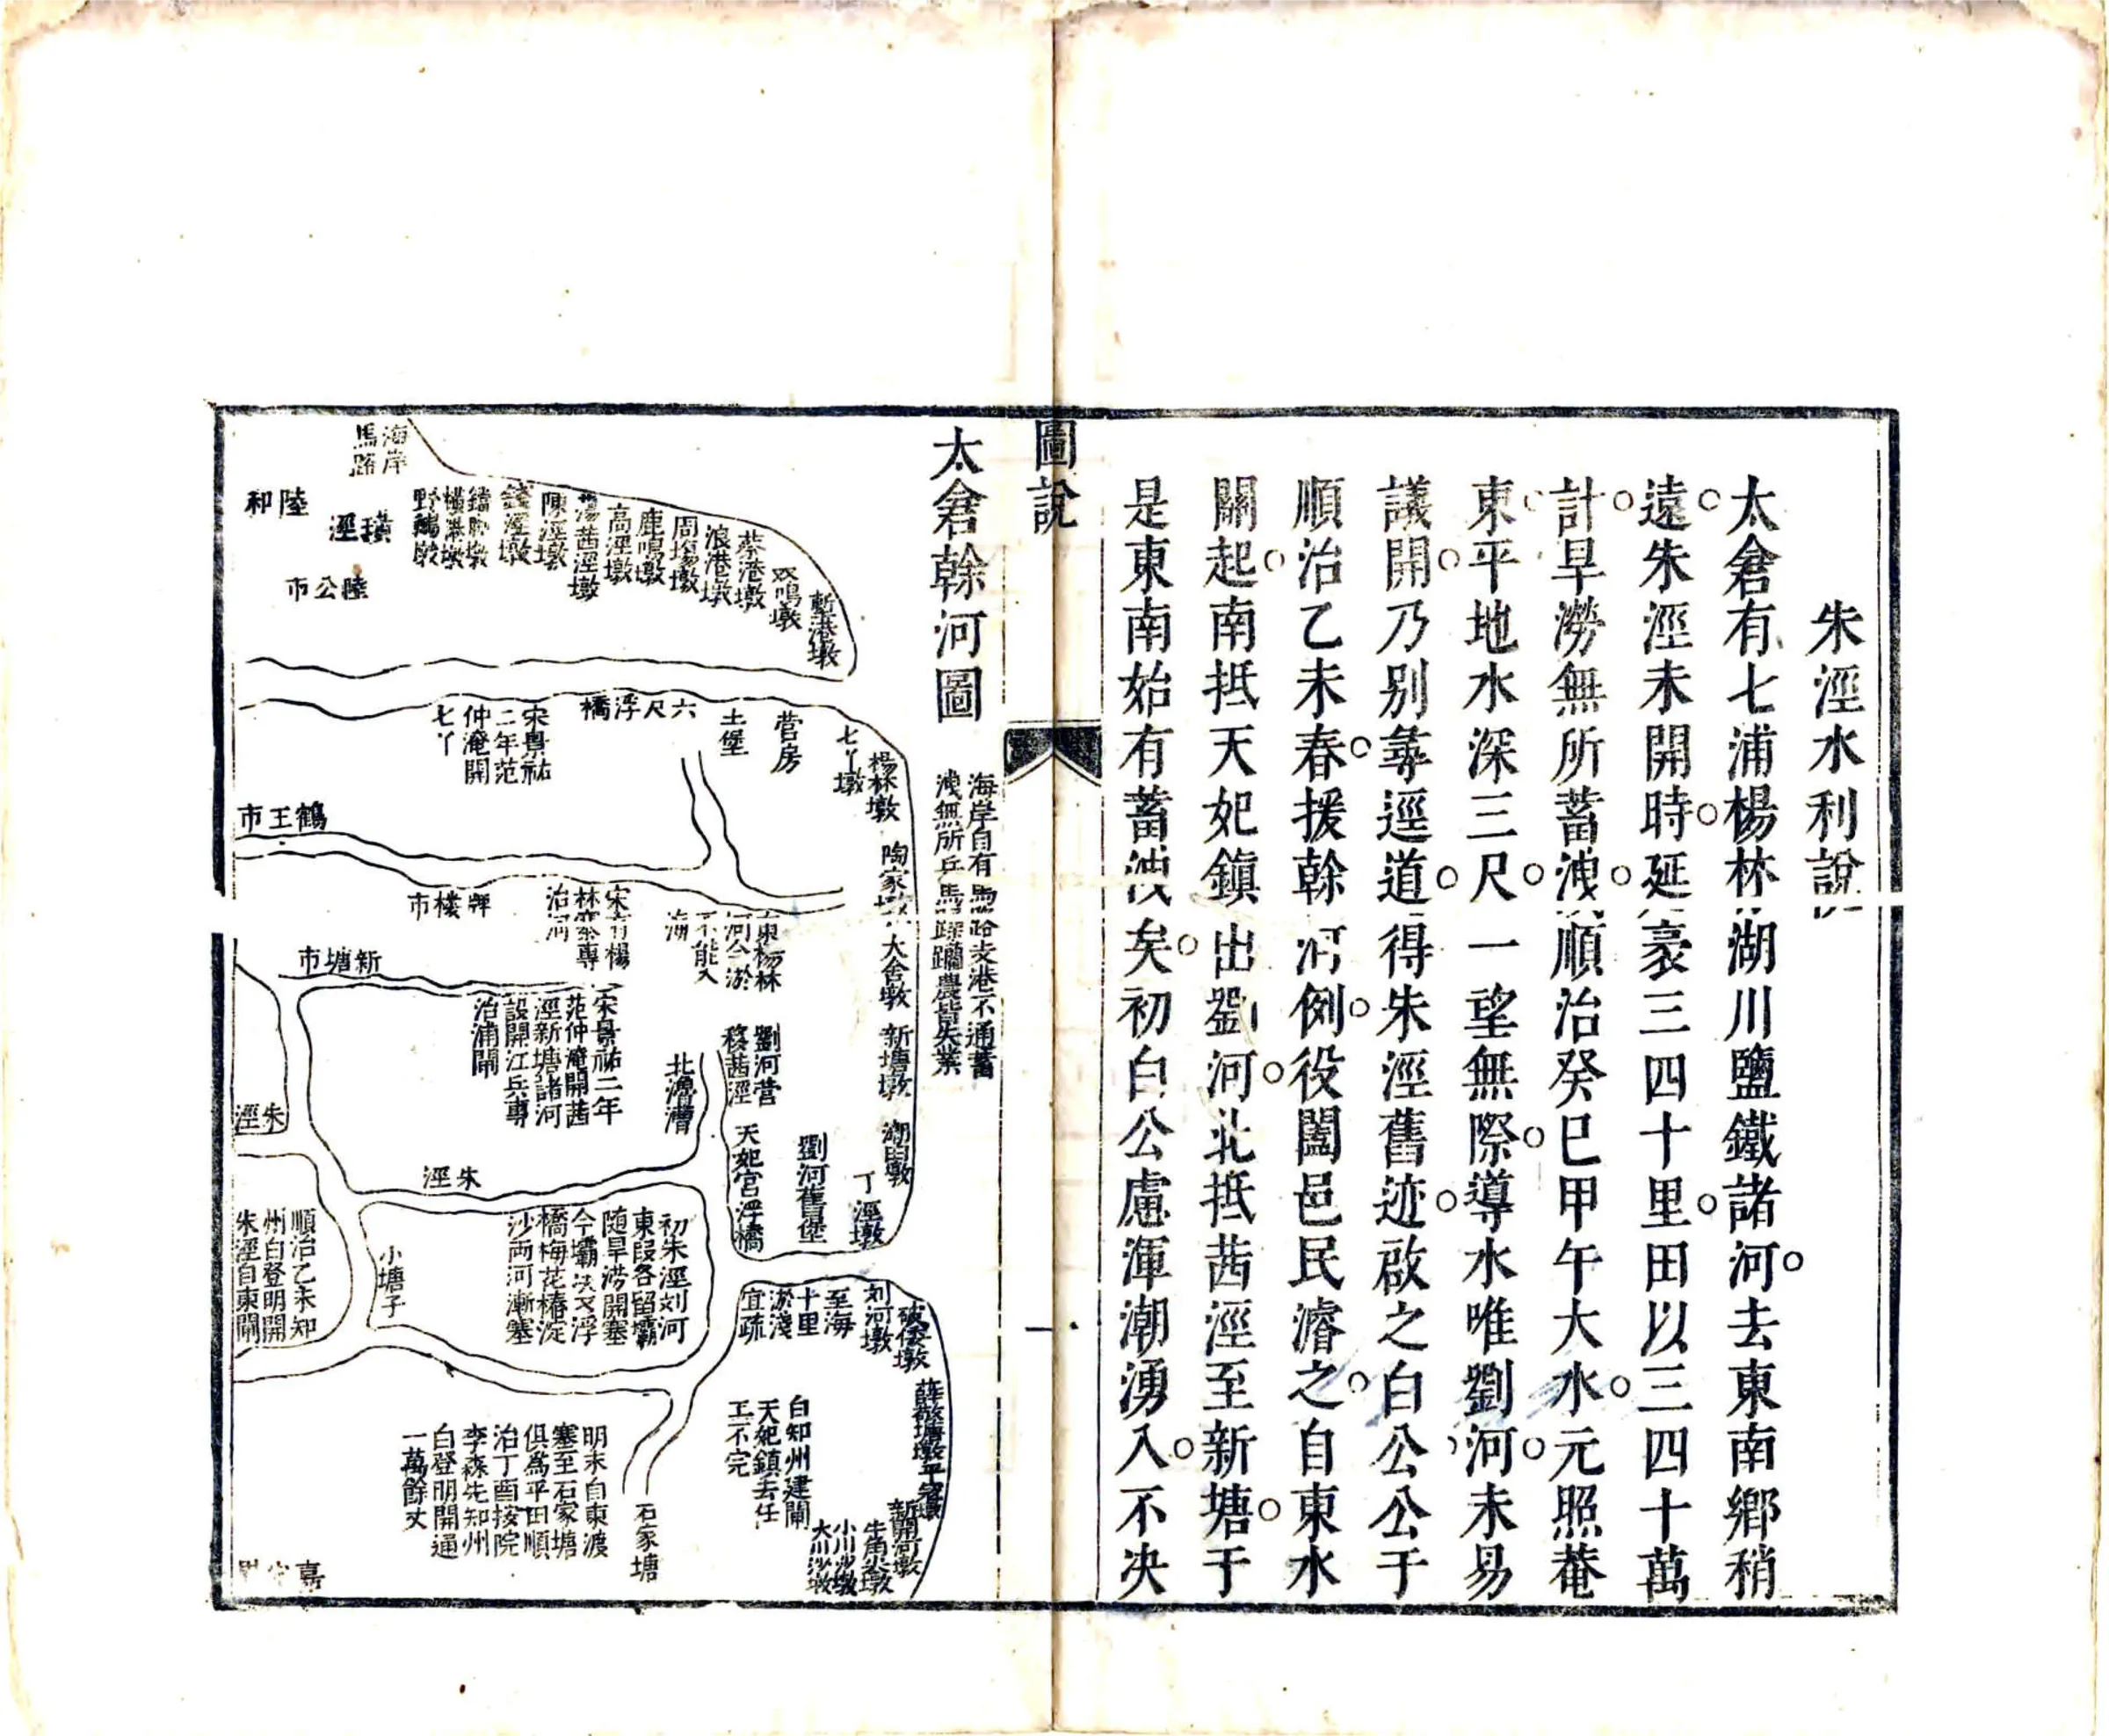 朱涇水利說
太倉有七浦楊林湖川鹽鐵諸河去東南鄉稍
遠朱涇未開時延袤三四十里田以三四十萬
計旱澇無所蓄洩順治癸巳甲午大水元照菴
東平地水深三尺一望無際導水唯劉河未易
議開乃別尋逕道得朱涇舊迹啟之白公公于
順治乙未春援幹河例役闔邑民濬之自東水
關起南抵天妃鎮出劉河北抵茜涇至新塘于
是東南始有蓄洩矣初白公慮渾潮湧入不決
圖說
一
太倉幹河圖
海岸自有馬路支港不通蓄
洩無所兵馬蹂躪農皆失業
海岸
馬路
陸和
璜涇
陸公市
野鶴墩
錢涇墩
陳涇墩
楊茜涇墩
高涇墩
鹿鳴墩
周塲墩
浪港墩
蔡港墩
双鳴墩
塹港墩
六尺浮橋
土堡
营房
七丫墩
楊林墩
宋景祐
二年范
仲淹開
七丫
鶴王市
陶家墩
牌樓市
宋有楊
林寨專
治河
東楊林
河今淤
不能入
海
大舍墩
新塘市
宋景祐二年
范仲淹開茜
涇新塘諸河
設開江兵專
治浦閘
新塘墩
劉河营
移茜涇
北漕漕
朱涇
潮田墩
劉河舊堡
天妃宮浮橋
丁涇墩
朱涇
順治乙未知
州白登明開
朱涇自東關
小塘子
初朱涇刘河
東段各留壩
随旱澇開塞
今壩决又浮
橋梅花樁淀
沙两河漸塞
刘河墩
至海
十里
淤淺
宜疏
破倭墩
薛敬塘墩
白知州建閘
天妃鎮去任
工不完
明末自東渡
塞至石家塘
俱為平田順
治丁酉按院
李森先知州
白登明開通
一萬餘丈
石家塘
新開河墩
牛角尖墩
小川沙墩
大川沙墩